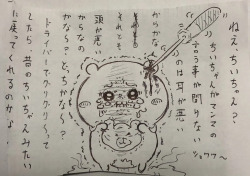 ねえ、ちいちゃん?
ちいちゃんがママの
言う事が聞けない
のは耳が悪い
からかな
それとも
頭が悪い
からなの
かなぁ?どっちかな〜?
ドライバーでクリクリ〜って
したら昔のちいちゃんみたい
に戻ってくれるのかなぁ